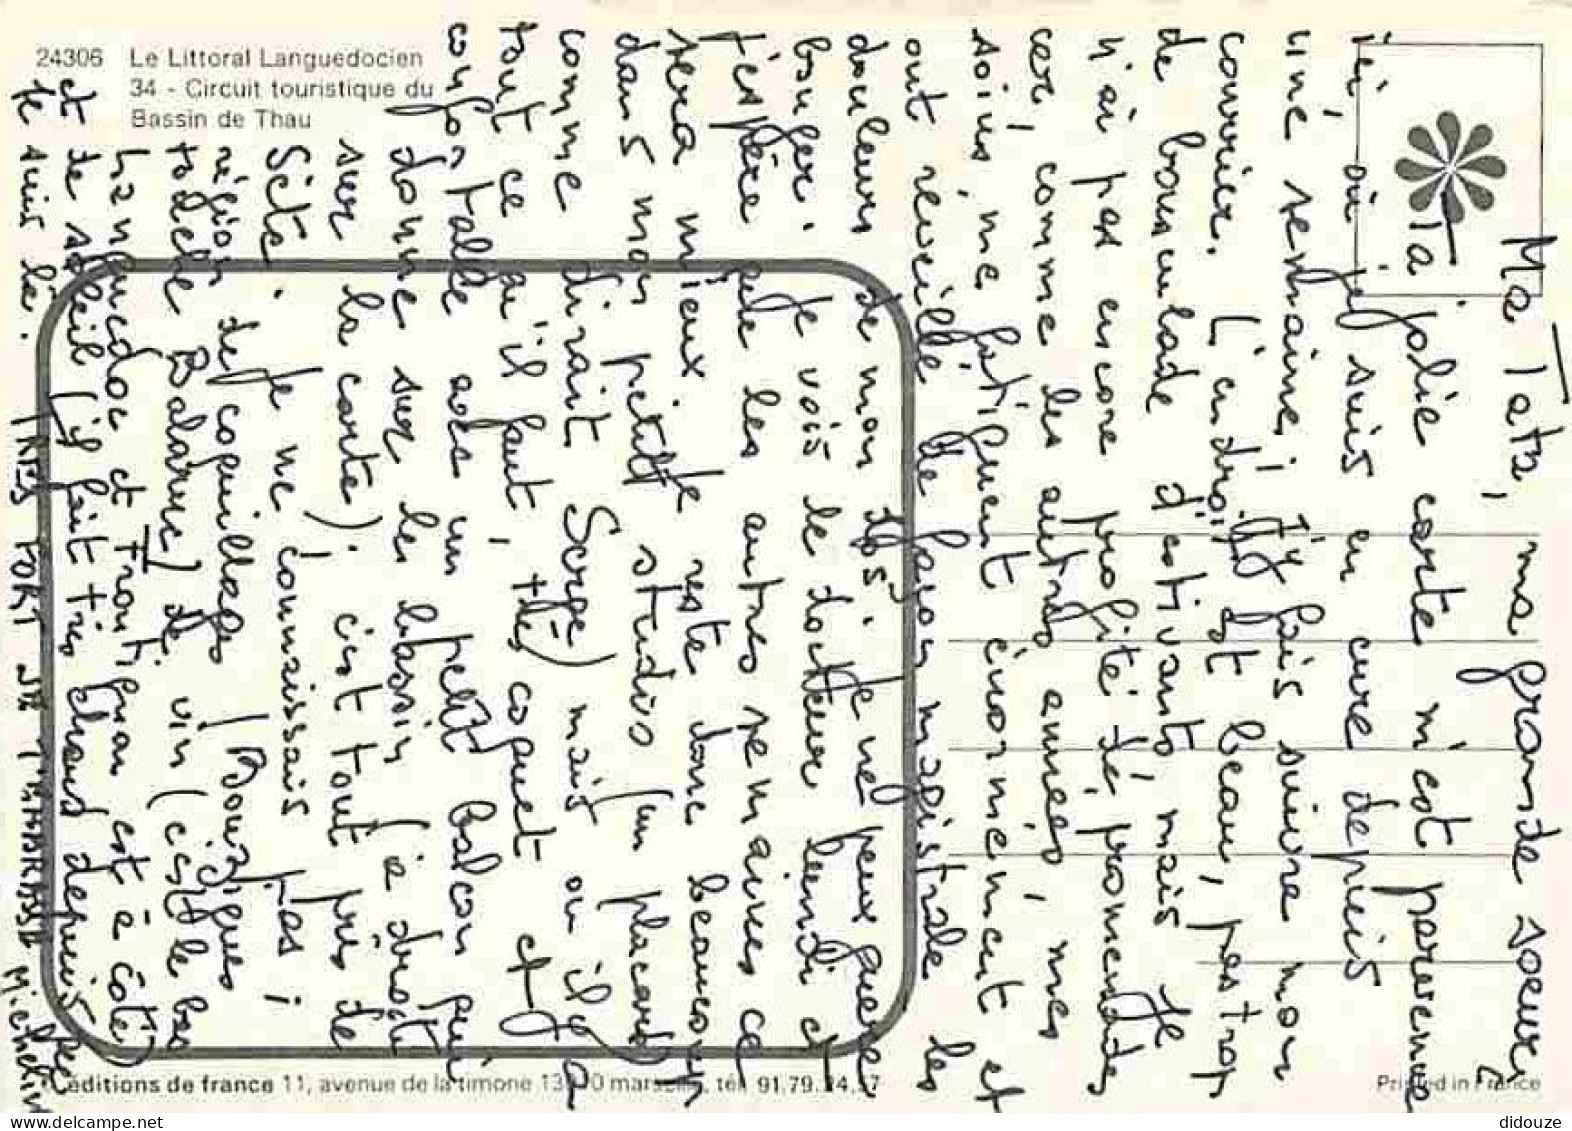 24306 Le Littoral Languedocien
34 - Circuit touristique du
Bassin de Thau
Ma Tata, ma grande soeur,
Ta jolie carte m'est parvenue
ici, où je suis en cure depuis
une semaine ; j'y fais suivre mon
courrier. L'endroit est beau, pas trop
de bousculade d'estivants, mais je
n'ai pas encore profité de promenades
car, comme les autres années, mes
soins me fatiguent énormément et
ont réveillé de façon magistrale les
douleurs de mon dos ; je ne peux guère
bouger. Je vois le docteur lundi et
j'espère que les autres semaines ce
sera mieux. Je reste donc beaucoup
dans mon petit studio (un placard
comme dirait Serge) mais où il y a
tout ce qu'il faut, très coquet et
confortable avec un petit balcon qui
donne sur le bassin (à droite
sur la carte). C'est tout près de
Sète. Je ne connaissais pas la
région de coquillages (Bouzigues
touche Balaruc) de vin (c'est le bas
Languedoc et Frontignan est à côté)
et de soleil (il fait très chaud depuis que
je suis là.
TRES FORT JE T'EMBRASSE Micheline
éditions de france 11, avenue de la timone 13010 marseille, tél. 91.79.24.37
Printed in France
didouze